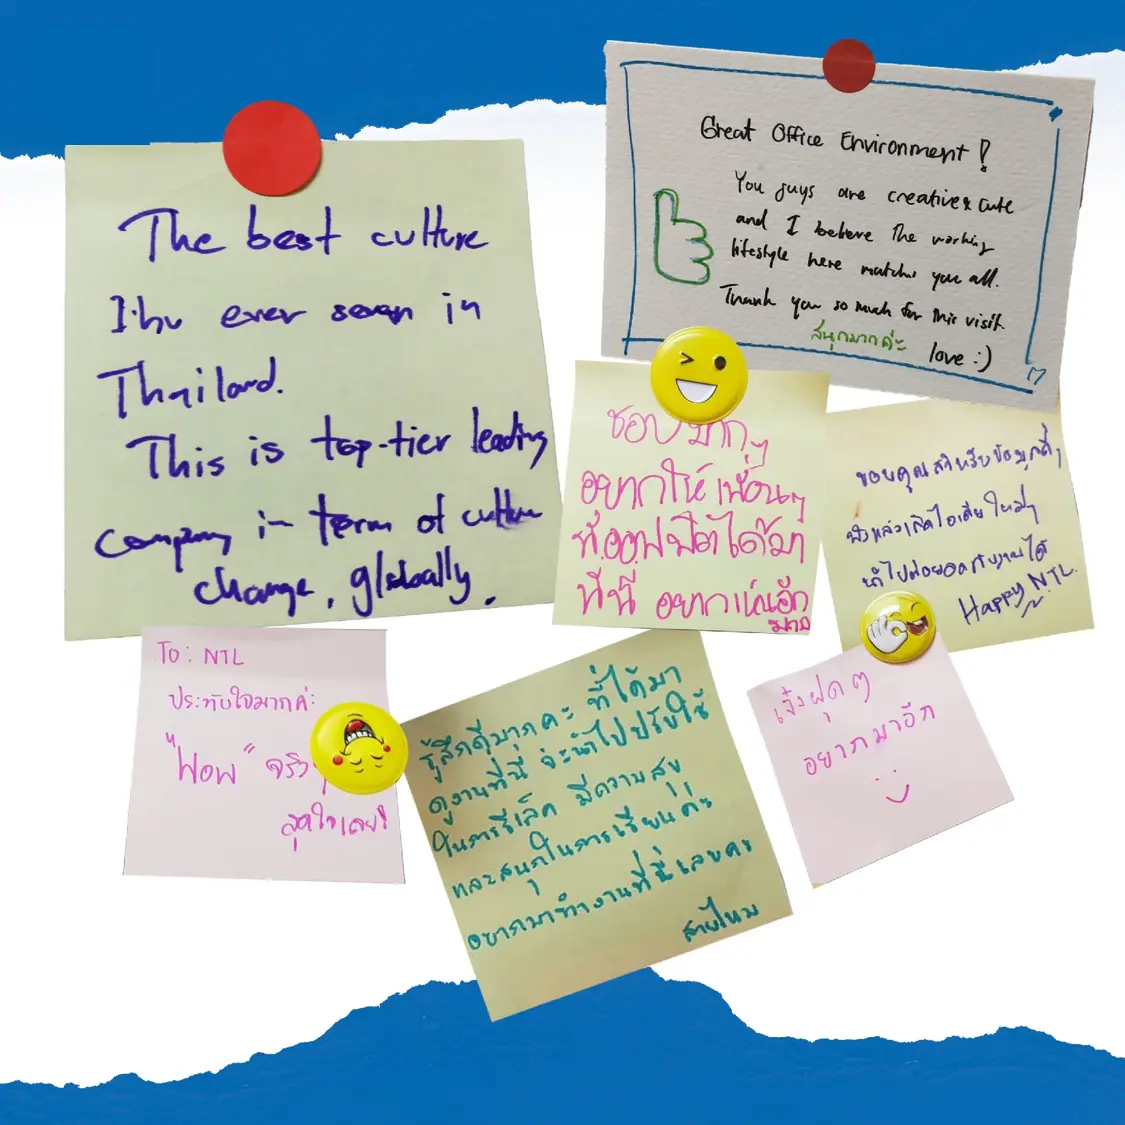 The best culture
I've ever seen in
Thailand.
This is top-tier leading
company in term of culture
change, globally.
Great Office Environment!
You guys are creative & cute
and I believe the working
lifestyle here matches you all.
Thank you so much for this visit.
สนุกมากค่ะ love :)
ชอบมากๆ
อยากให้เพื่อนๆ
ที่ออฟฟิตได้มา
ที่นี่ อยากมาอีก
มาก
ขอบคุณสำหรับข้อมูลดีๆ
ฟังแล้วเกิดไอเดียใหม่ๆ
นำไปต่อยอดกับงานได้
Happy NTL.
To: NTL
ประทับใจมากค่ะ
"WOW" จริง
สุดใจเลย!
รู้สึกดีมากคะ ที่ได้มา
ดูงานที่นี่ จะนำไปปรับใช้
ในการ มีความสุข
และสนุกในการเรียนค่ะ
อยากมาทำงานที่นี่เลยคะ
สายไหม
เจ๋งฝุดๆ
อยากมาอีก